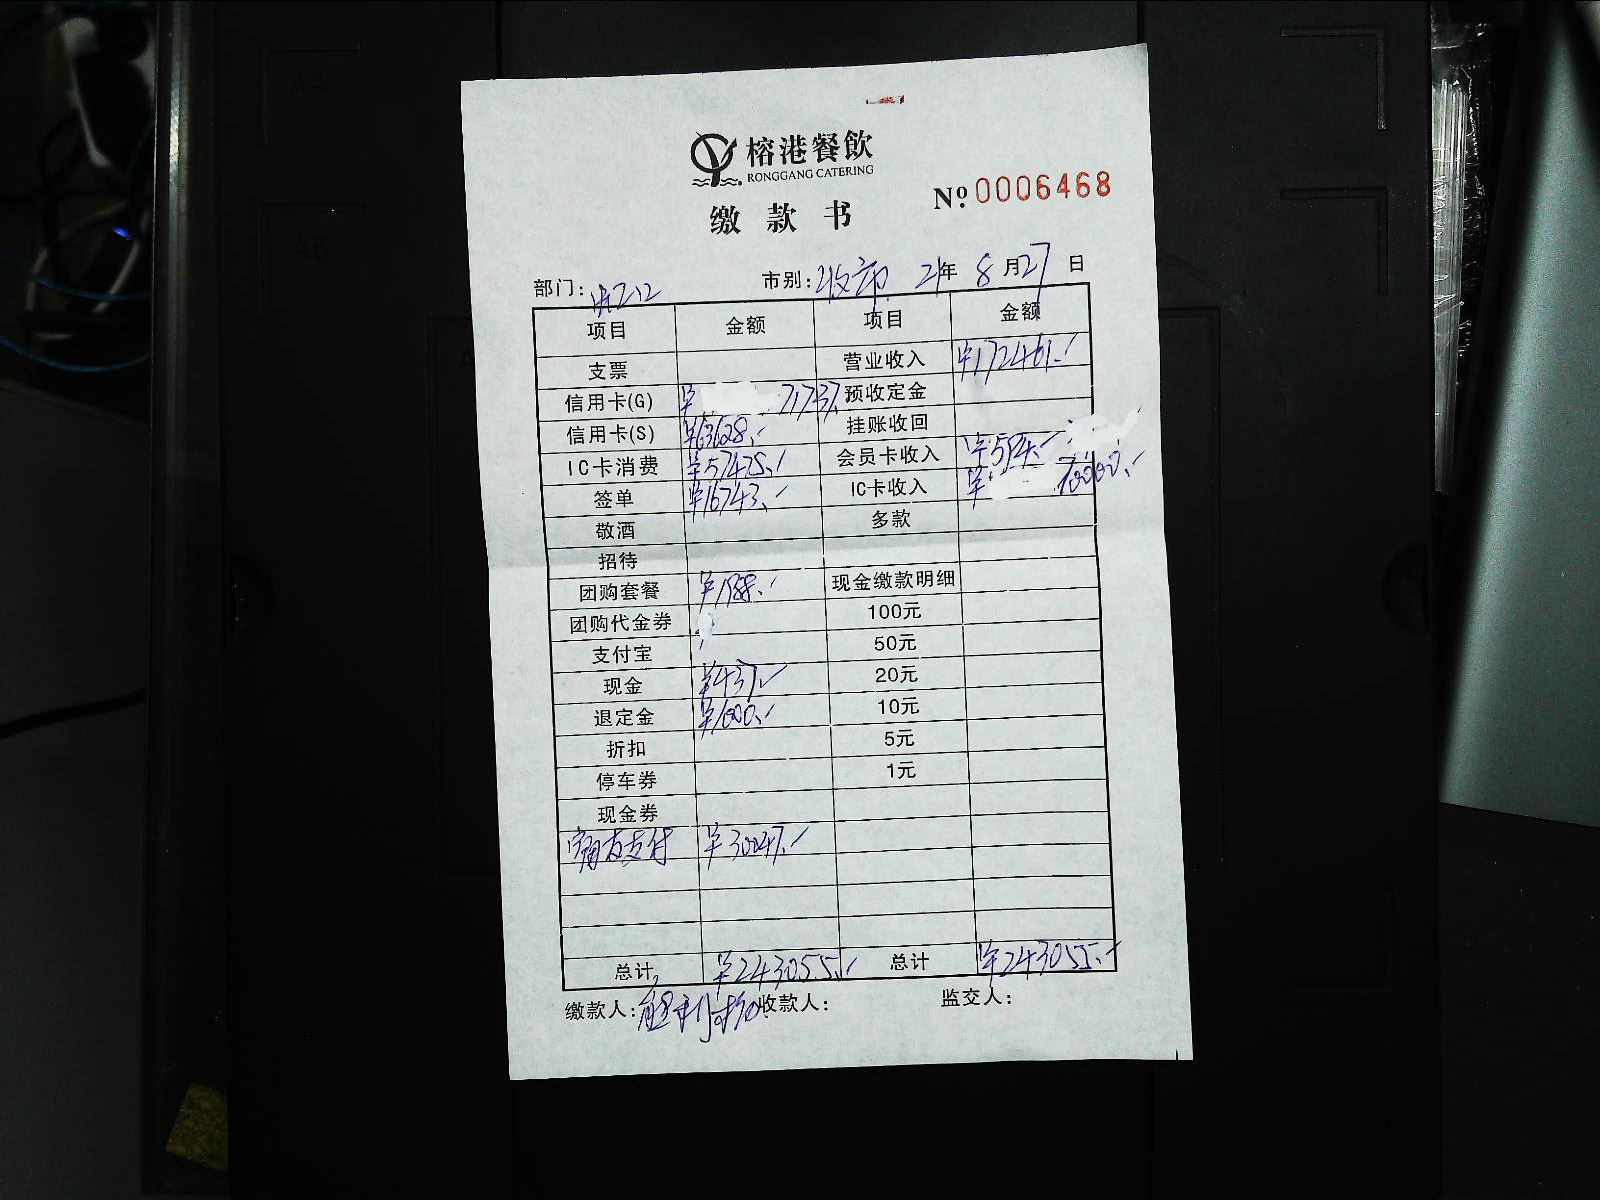 榕港餐飲
RONGGANG CATERING
缴款书
№ 0006468
部门: 市别:收市 21年 8月27日
项目 金额 项目 金额
支票 营业收入 ¥172461.
信用卡(G) ¥71737. 预收定金
信用卡(S) ¥63628. 挂账收回
IC卡消费 ¥57475. 会员卡收入 ¥594.
签单 ¥16743. IC卡收入 ¥70000.
敬酒 多款
招待
团购套餐 ¥1988. 现金缴款明细
团购代金券 100元
支付宝 50元
现金 ¥437. 20元
退定金 ¥1000. 10元
折扣 5元
停车券 1元
现金券
支付 ¥30047.
总计 ¥243055. 总计 ¥243055.
缴款人: 收款人: 监交人: